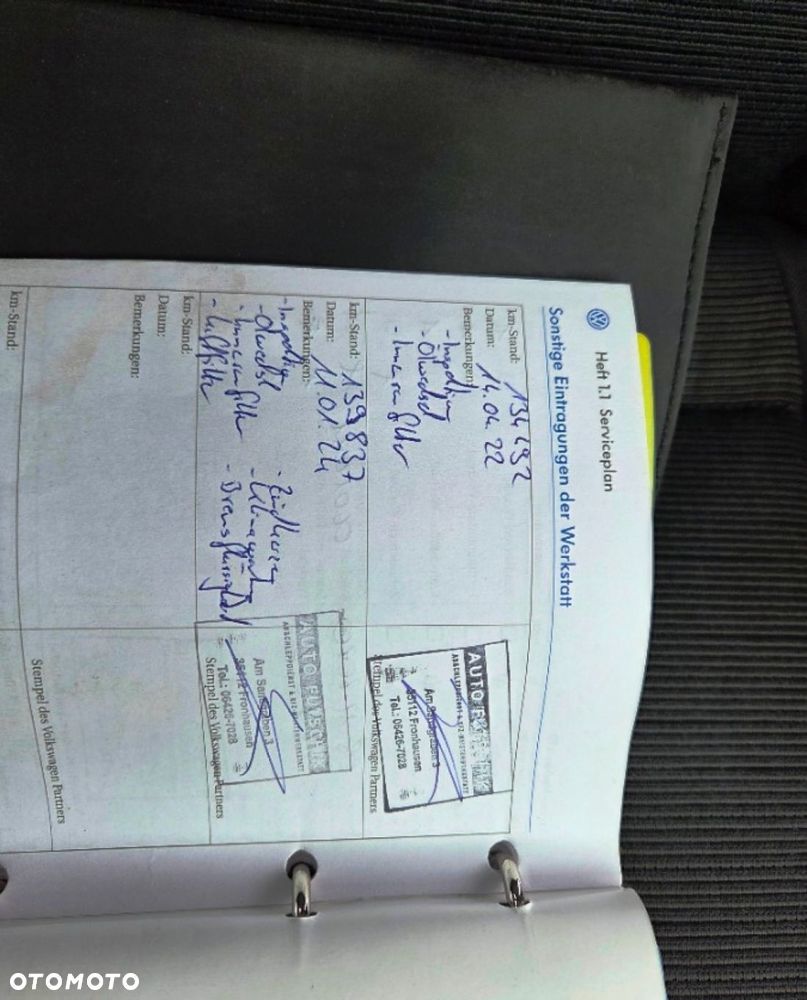 Heft 1.1 Serviceplan
Sonstige Eintragungen der Werkstatt
km-Stand: 134 492
Datum: 14.04.22
Bemerkungen:
- Inspektion
- Ölwechsel
- Innenraumfilter
AUTO
ABSCHLEPPDIENST & KFZ-MEISTERWERKSTATT
Am Salzgraben 3
35112 Fronhausen
Tel.: 06426-7028
Stempel des Volkswagen Partners
km-Stand: 139 837
Datum: 11.01.24
Bemerkungen:
- Inspektion
- Ölwechsel
- Innenraumfilter
- Luftfilter
- Zündkerzen
- Bremsflüssigkeit
AUTO
ABSCHLEPPDIENST & KFZ-MEISTERWERKSTATT
Am Salzgraben 3
35112 Fronhausen
Tel.: 06426-7028
Stempel des Volkswagen Partners
km-Stand:
Datum:
Bemerkungen:
Stempel des Volkswagen Partners
km-Stand:
OTOMOTO